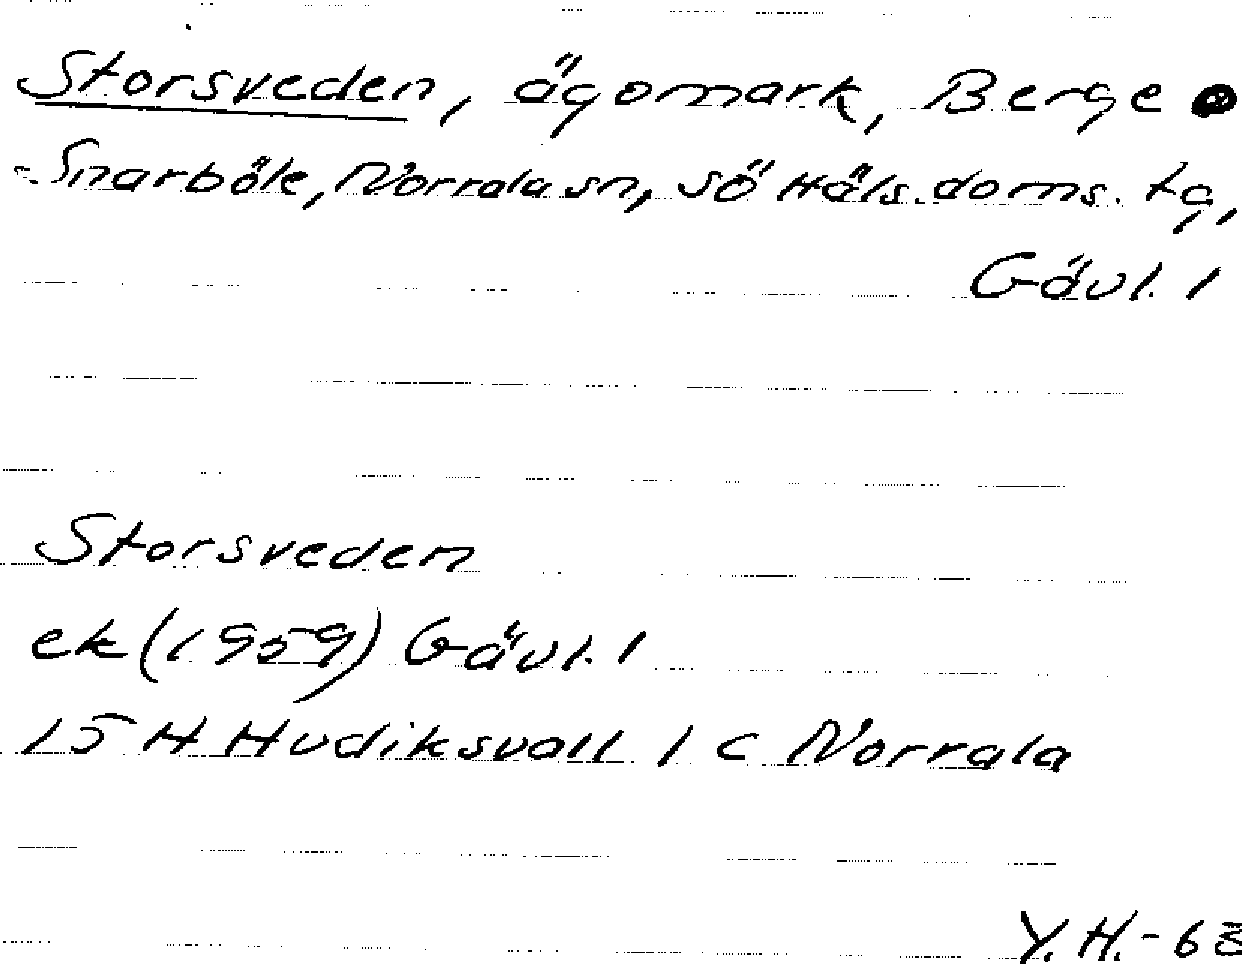 Storsveden, ägomark, Berge
-Snarböle, Norrala sn, sö Häls. doms. tg,
Gävl. l
Storsveden
ek (1959) Gävl. l
15 H Hudiksvall 1 c Norrala
Y. H. - 68